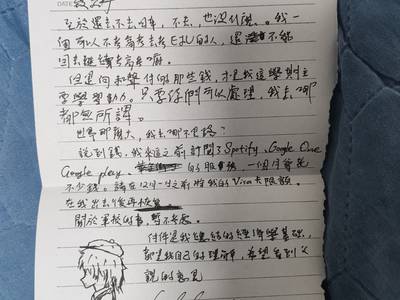 DATE
至於還去不去日本，不去，也沒什麼。我一
個可以不考高考去考EJU的人，還不能
回去繼續考高考嘛。
但是向和聲付的那些錢，才是我這學期主
要學習動力。只要你們可以處理，我去哪
都無所謂。
世界那麼大，我去哪不是路？
說到錢，我來之前訂閱了Spotify、Google One
Google play 的服務，一個月會花
不少錢。請在12月1日之前將我的Visa卡限額。
在我出去後再恢復
關於軍校的事，暫不考慮。
附件是我總結的經濟學基礎，
都是我自己的理解，希望看到父
說的意見